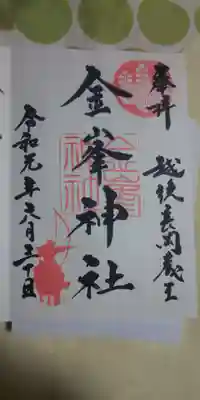 奉拝 越後長岡蔵王
金峯神社
令和元年六月三十日